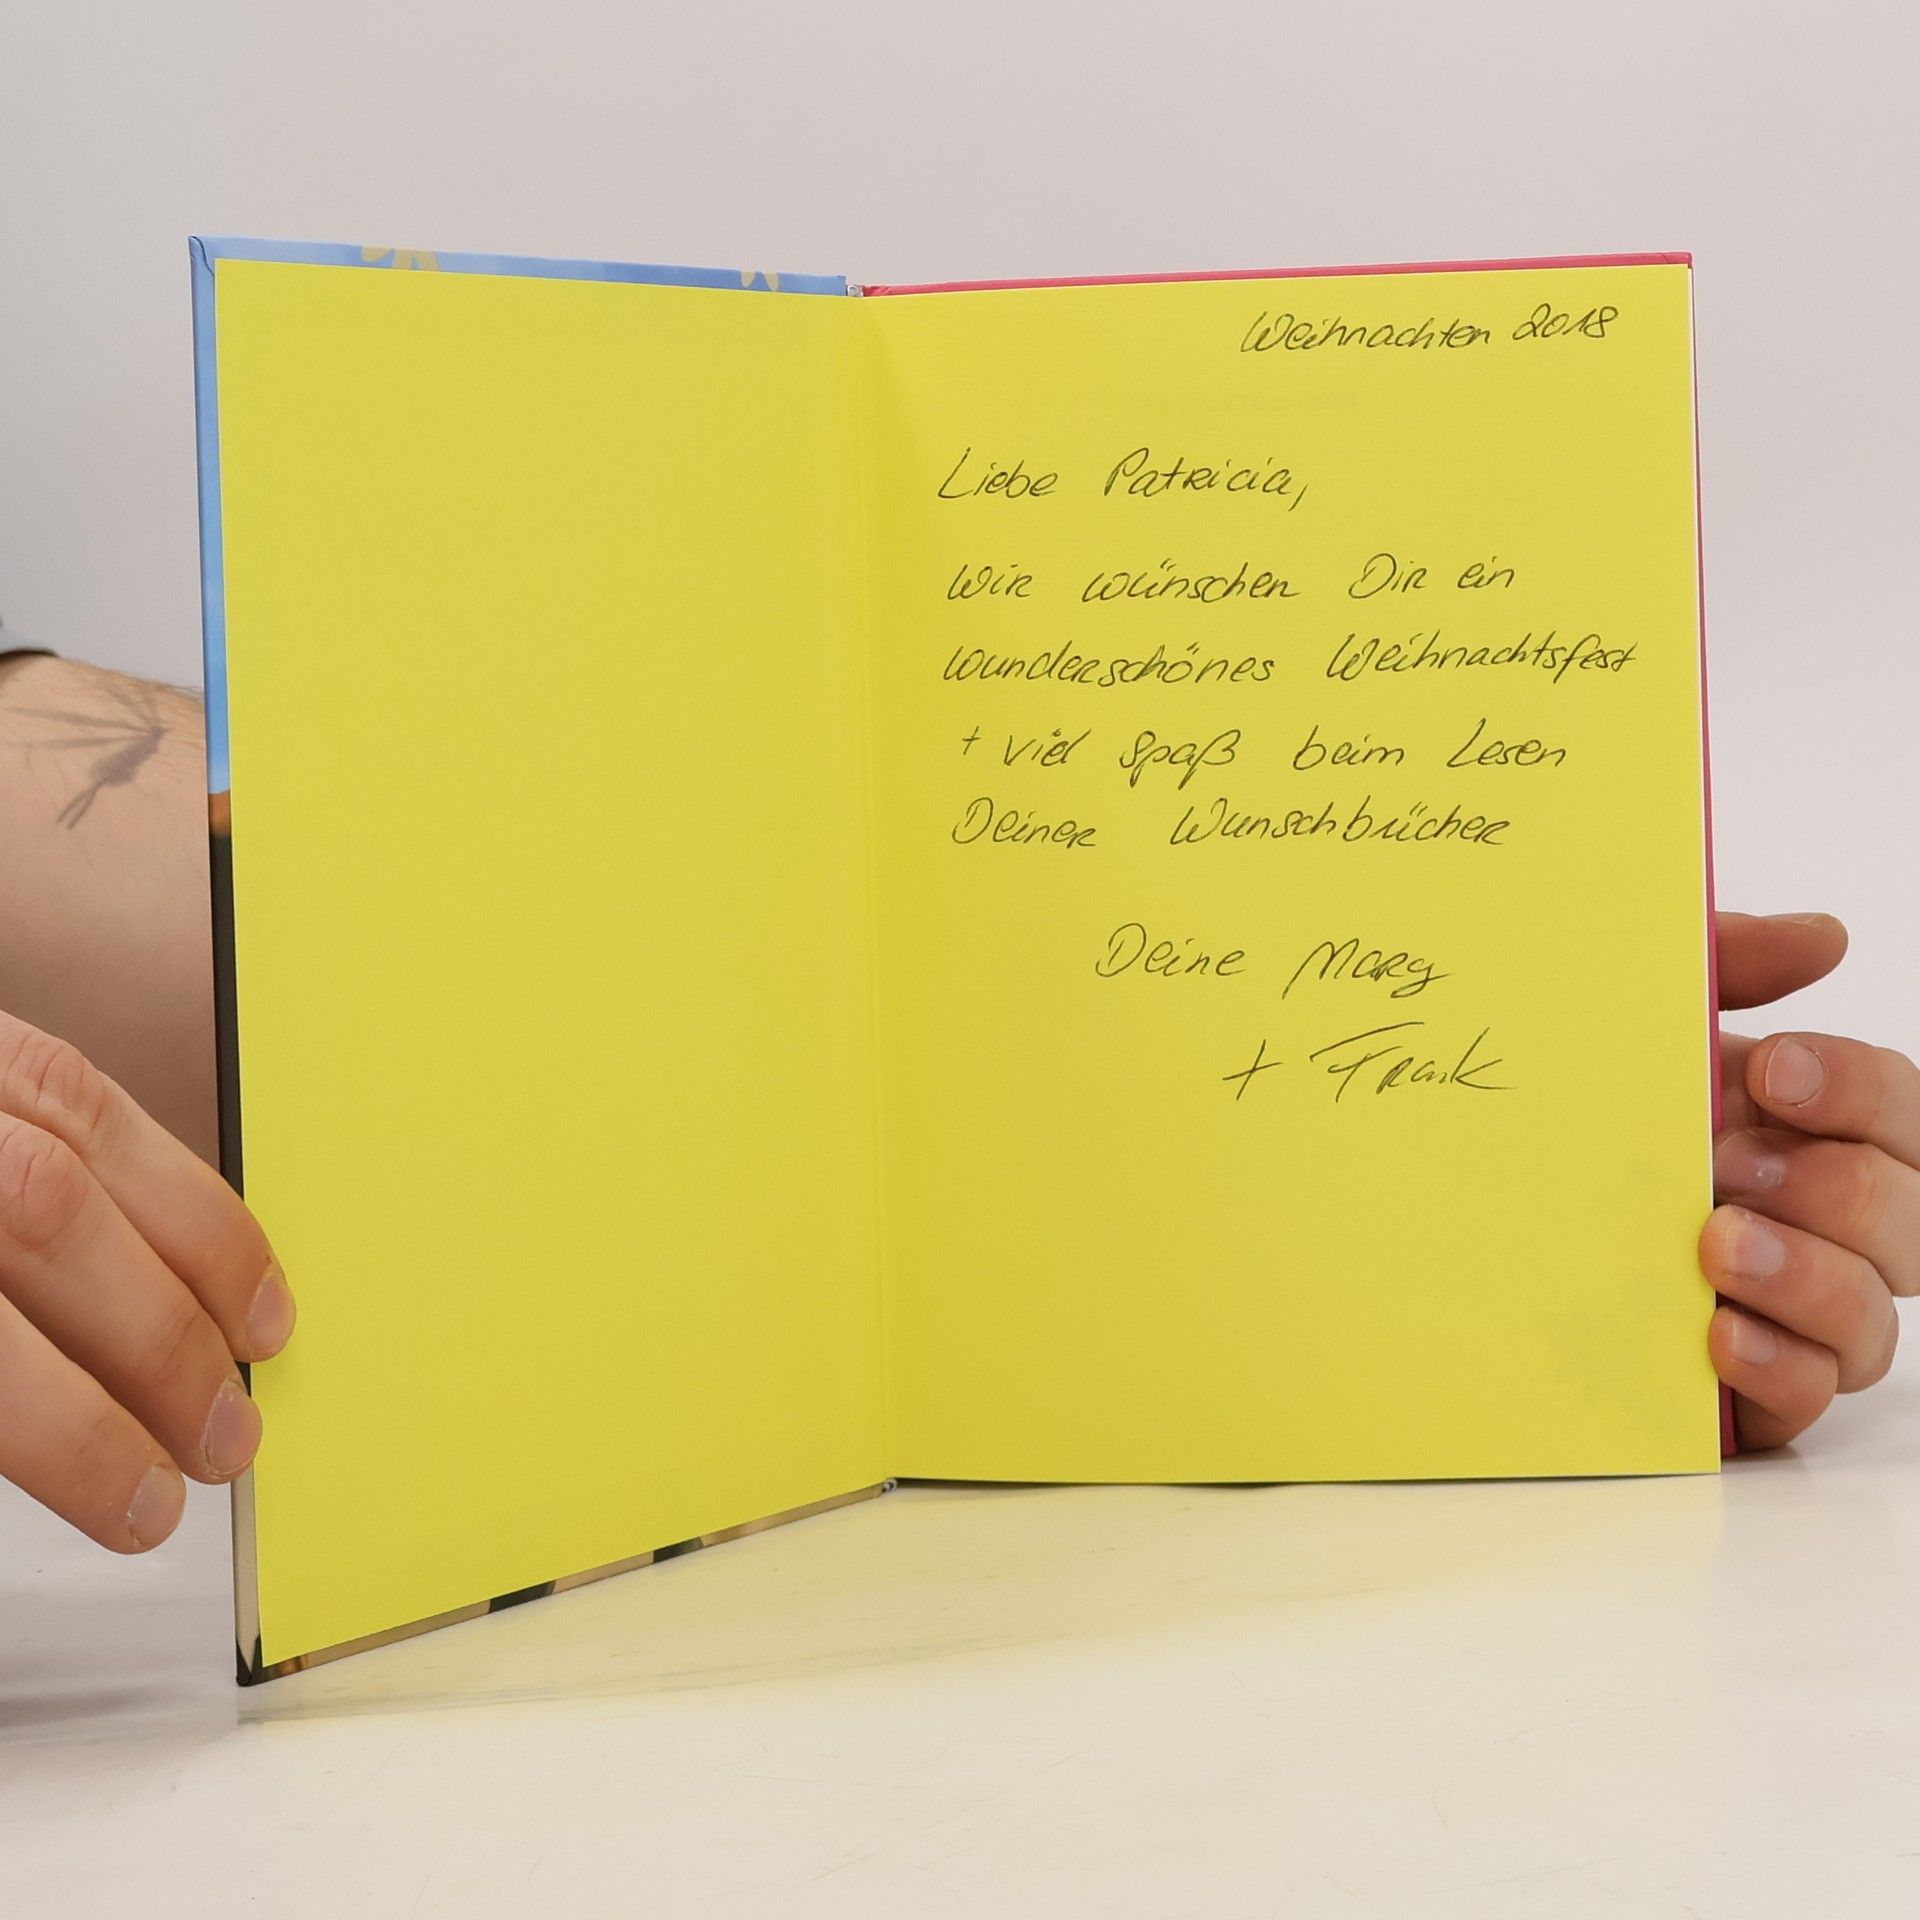 Weihnachten 2018
Liebe Patricia,
Wir wünschen Dir ein
wunderschönes Weihnachtsfest
+ viel Spaß beim Lesen
Deiner Wunschbücher
Deine Mary
+ Frank